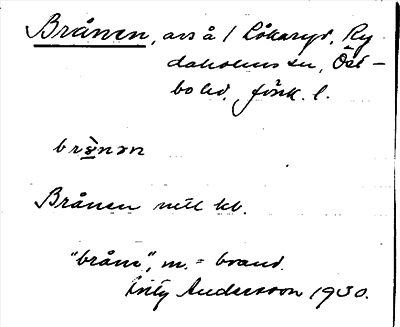 Brånen, avs å / Lökaryd, Ry
daholms sn, Öst-
bo hd, Jönk. l.
brånən
Brånen mtl kb.
"bråne", m. = brand.
Andersson 1930.